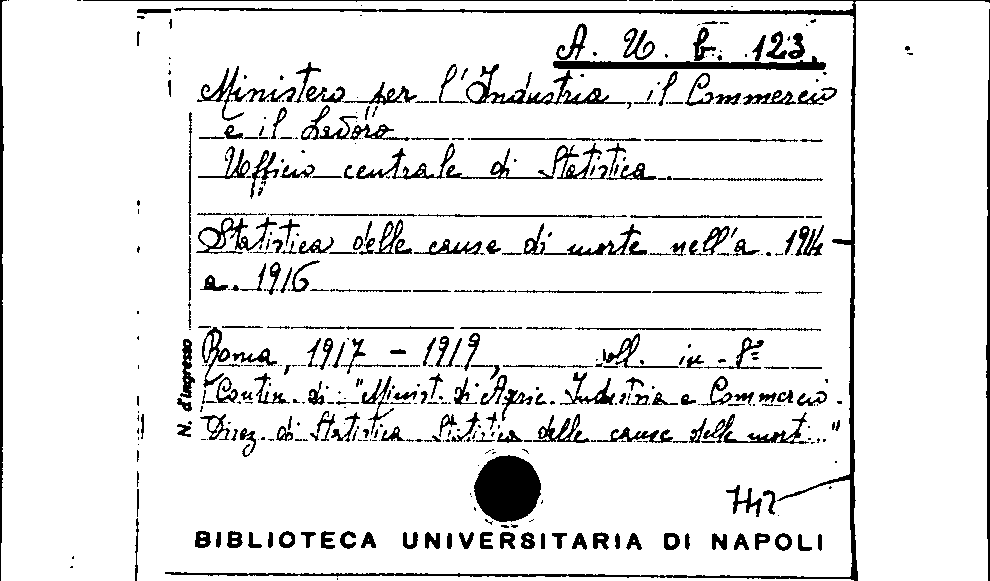 A. U. b. 123.
Ministero per l'Industria, il Commercio
e il Lavoro
Ufficio centrale di Statistica.
Statistica delle cause di morte nell'a. 1914 –
a. 1916
Roma, 1917 – 1919, voll. in - 8º
Contin. di: "Minist. di Agric. Industria e Commercio.
Direz. di Statistica. Statistica delle cause delle morti..."
N. d'ingresso
BIBLIOTECA UNIVERSITARIA DI NAPOLI